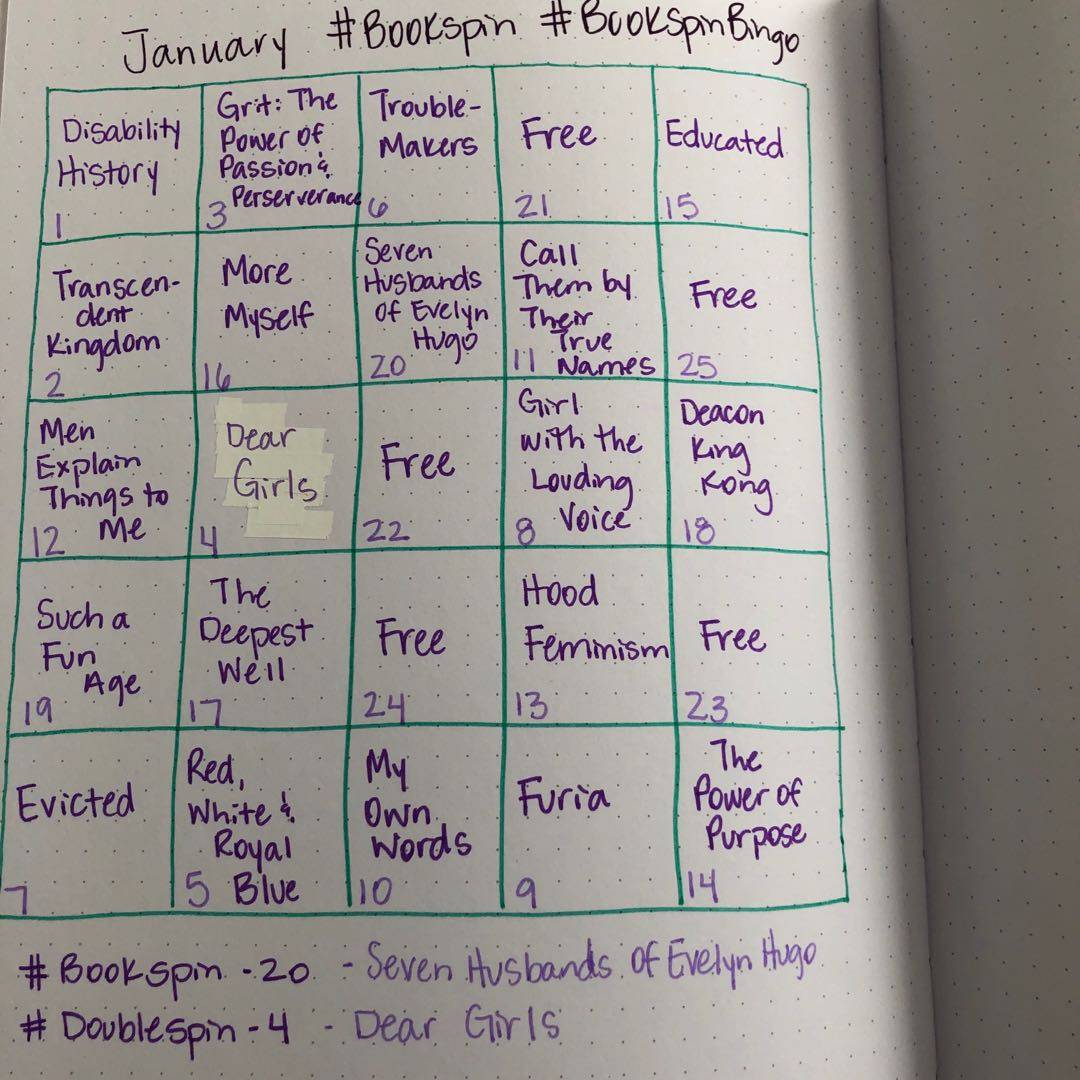 January #Bookspin #BookSpinBingo
Disability
History
1
Grit: The
Power of
Passion &
Perserverance
3
Trouble-
Makers
6
Free
21
Educated
15
Transcen-
dent
Kingdom
2
More
Myself
16
Seven
Husbands
of Evelyn
Hugo
20
Call
Them by
Their
True
11 Names
Free
25
Men
Explain
Things to
12 Me
Dear
Girls
4
Free
22
Girl
with the
Louding
8 Voice
Deacon
King
Kong
18
Such a
Fun
Age
19
The
Deepest
Well
17
Free
24
Hood
Feminism
13
Free
23
Evicted
7
Red,
White &
Royal
5 Blue
My
Own
Words
10
Furia
9
The
Power of
Purpose
14
#Bookspin - 20 - Seven Husbands of Evelyn Hugo
# Doublespin - 4 - Dear Girls